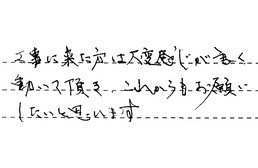 工事に来た方は大変感じが良く
動いて頂き、これからもお願い
したいと思います